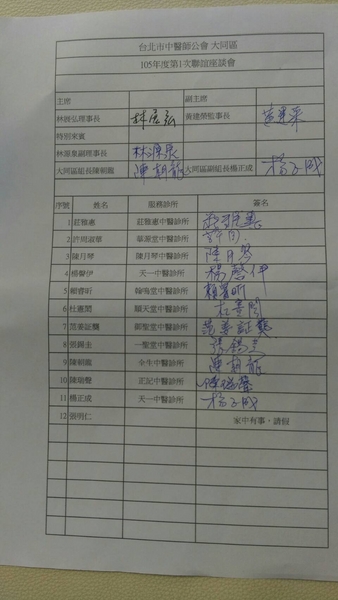 台北市中醫師公會 大同區
105年度第1次聯誼座談會
主席 副主席
林展弘理事長 林展弘 黃建榮監事長 黃建榮
特別來賓
林源泉副理事長 林源泉
大同區組長陳朝龍 陳朝龍 大同區副組長楊正成 楊正成
序號 姓名 服務診所 簽名
1 莊雅惠 莊雅惠中醫診所 莊雅惠
2 許周淑華 華源堂中醫診所
3 陳月琴 陳月琴中醫診所 陳月琴
4 楊馨伊 天一中醫診所 楊馨伊
5 賴睿昕 翰鳴堂中醫診所 賴睿昕
6 杜憲閔 順天堂中醫診所 杜憲閔
7 范姜証龑 御聖堂中醫診所 范姜証龑
8 張錫圭 一聖堂中醫診所 張錫圭
9 陳朝龍 中醫診所 陳朝龍
10 陳瑞聲 正記中醫診所 陳瑞聲
11 楊正成 天一中醫診所 楊正成
12 張明仁 家中有事，請假